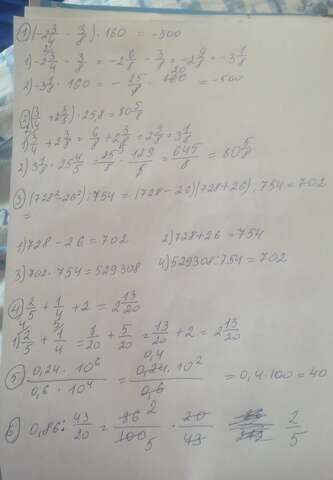 1) (-2 3/4 - 3/8) · 160 = -500
1) -2 3/4 - 3/8 = -2 6/8 - 3/8 = -2 9/8 = -3 1/8
2) -3 1/8 · 160 = - 25/8 · 160 20 = -500
2) (3/4 + 2 3/8) · 25,8 = 80 5/8
1) 3/4 + 2 3/8 = 6/8 + 2 3/8 = 2 9/8 = 3 1/8
2) 3 1/8 · 25 4/5 = 25 5/8 · 129/5 = 645/8 = 80 5/8
3) (728² - 26²) : 754 = (728 - 26)(728 + 26) : 754 = 702
=
1) 728 - 26 = 702 2) 728 + 26 = 754
3) 702 · 754 = 529308 4) 529308 : 754 = 702
4) 2/5 + 1/4 + 2 = 2 13/20
1) 2/5 + 1/4 = 1/20 + 5/20 = 13/20 + 2 = 2 13/20
0,4
5) 0,24 · 10⁶ / 0,6 · 10⁴ = 0,24 · 10² / 0,6 = 0,4 · 100 = 40
6) 0,86 : 43/20 = 86 2 / 100 5 · 20/43 2/5